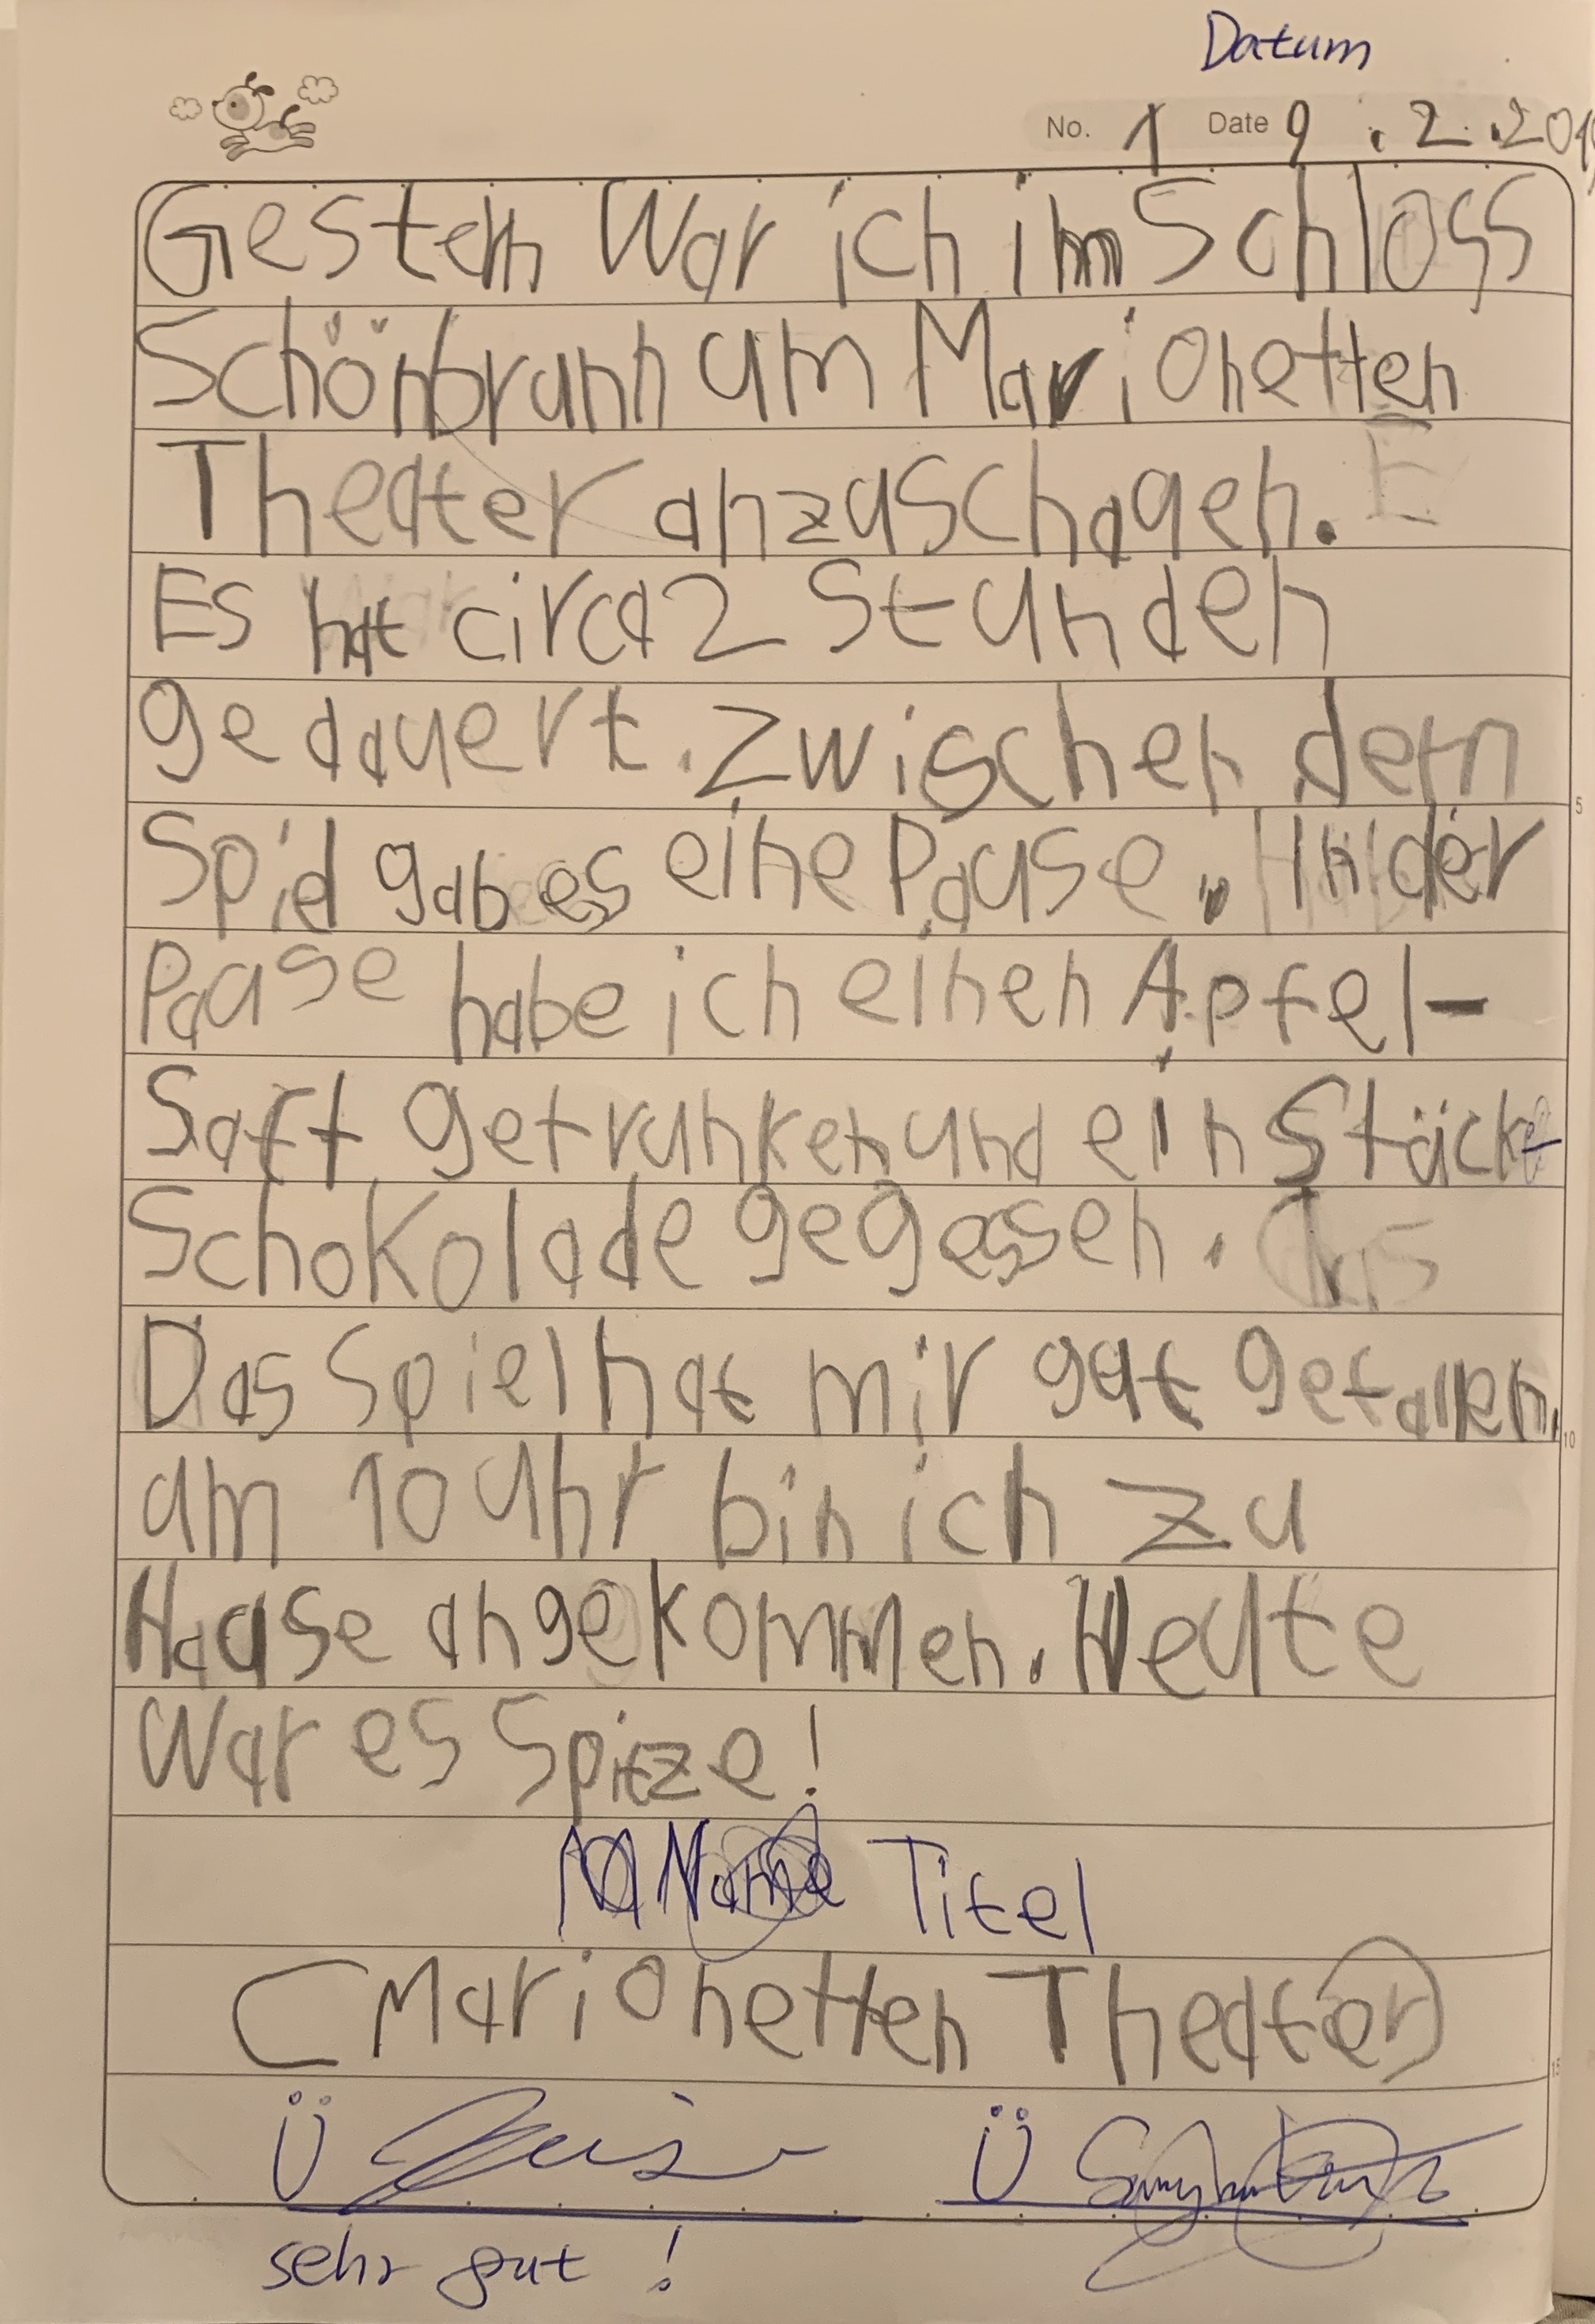 Datum
No. 1 Date 9.2.2019
Gestern War ich im Schloss
Schönbrunn um Marionetten
Theater anzuschauen.
Es hat circa 2 Stunden
gedauert. Zwischen dem
Spiel gab es eine Pause. In der
Pause habe ich einen Apfel-
Saft getrunken und ein Stück
Schokolade gegessen.
Das Spiel hat mir gut gefallen.
um 10 Uhr bin ich zu
Hause angekommen. Heute
War es Spitze!
Titel
(Marionetten Theater)
Ü Ü
sehr gut!
5
10
15